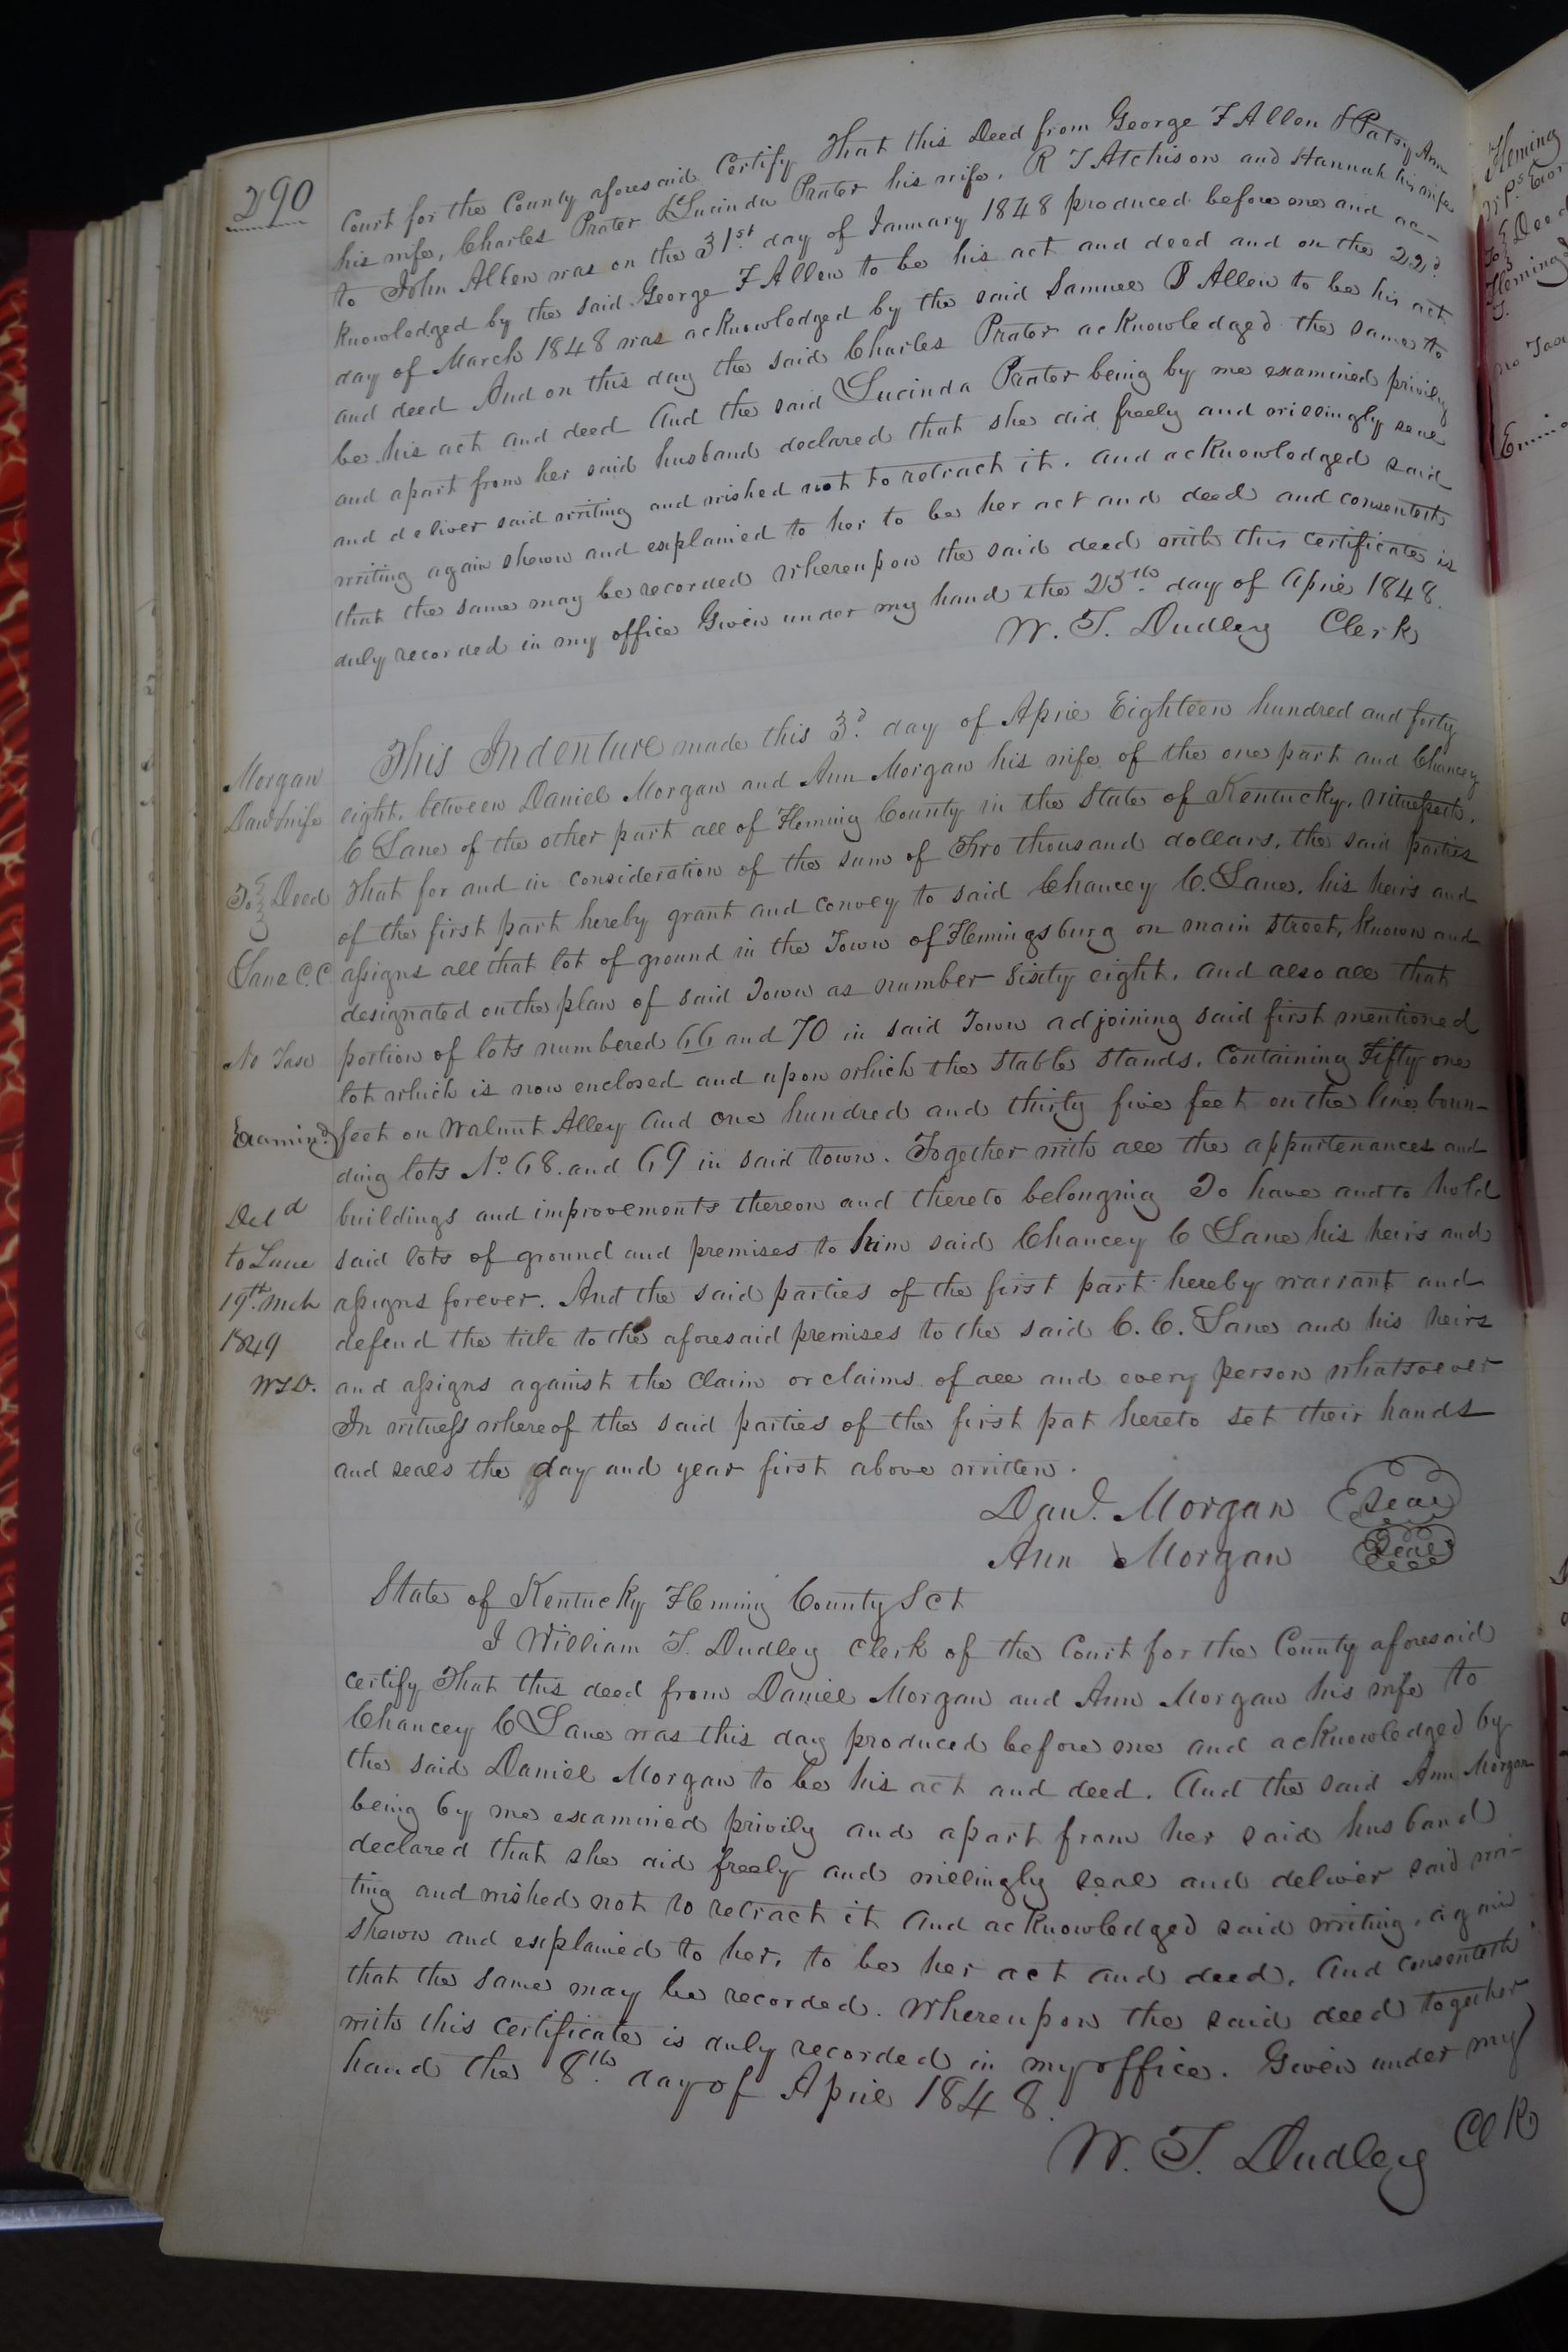 290
Court for the County aforesaid Certify That this Deed from George F Allen & Patsy Ann
his wife, Charles Prater & Lucinda Prater his wife, R T Atchison and Hannah his wife
to John Allen was on the 31st day of January 1848 produced before me and ac-
knowledged by the said George F Allen to be his act and deed and on the 22d
day of March 1848 was acknowledged by the said Samuel Allen to be his act
and deed And on this day the said Charles Prater acknowledged the same to
be his act and deed And the said Lucinda Prater being by me examined privily
and apart from her said husband declared that she did freely and willingly seal
and deliver said writing and wished not to retract it. And acknowledged said
writing again shewn and explained to her to be her act and deed and consenteth
that the same may be recorded whereupon the said deed with this certificate is
duly recorded in my office Given under my hand the 25th day of April 1848.
W. T. Dudley Clerk
Morgan
Danl & wife
To } Deed
Lane C. C.
No Tax
Examind
Deld
to Lane
19th Mch
1849
WTD.
This Indenture made this 3d day of April Eighteen hundred and forty
eight, between Daniel Morgan and Ann Morgan his wife of the one part and Chancey
C Lane of the other part all of Fleming County in the State of Kentucky, Witnesseth,
That for and in consideration of the sum of Two thousand dollars, the said parties
of the first part hereby grant and convey to said Chancey C. Lane, his heirs and
assigns all that lot of ground in the Town of Flemingsburg on main street, known and
designated on the plan of said Town as number Sixty eight, and also all that
portion of lots numbered 66 and 70 in said Town adjoining said first mentioned
lot which is now enclosed and upon which the stable stands, Containing Fifty one
feet on Walnut Alley and one hundred and thirty five feet on the line boun-
ding lots No. 68. and 69 in said town. Together with all the appurtenances and
buildings and improvements thereon and thereto belonging To have and to hold
said lots of ground and premises to him said Chancey C Lane his heirs and
assigns forever. And the said parties of the first part hereby warrant and
defend the title to the aforesaid premises to the said C. C. Lane and his heirs
and assigns against the Claim or claims of all and every person whatsoever
In witness whereof the said parties of the first pat hereto set their hands
and seals the day and year first above written.
Danl. Morgan Seal
Ann Morgan Seal
State of Kentucky Fleming County Sct
I William T. Dudley Clerk of the Court for the County aforesaid
certify That this deed from Daniel Morgan and Ann Morgan his wife to
Chancey C Lane was this day produced before me and acknowledged by
the said Daniel Morgan to be his act and deed. And the said Ann Morgan
being by me examined privily and apart from her said husband
declared that she did freely and willingly seal and deliver said wri-
ting and wished not to retract it And acknowledged said writing, again
shewn and explained to her, to be her act and deed, And consenteth
that the same may be recorded. Whereupon the said deed together
with this certificate is duly recorded in my office. Given under my
hand the 8th day of April 1848.
W. T. Dudley Clk
Fleming
To } Deed
Fleming
no Tax